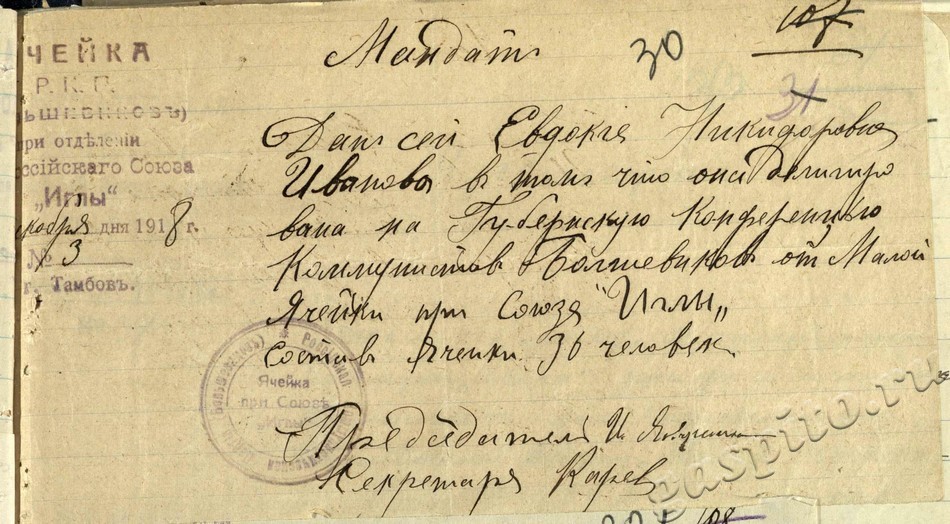 107
Мандатъ
30
31
ЧЕЙКА
Р. К. П.
ЬШЕВИКОВЪ)
при отдѣленіи
ссійскаго Союза
„Иглы“
кабря дня 1918 г.
№ 3
г. Тамбовъ.
Данъ сей Евдокіе Никифоровна
Иванова в томъ что она Делигиро
вана на Губернскую Конференцыю
Коммунистов Большевиков от Малой
Ячейки при Союза "Иглы„
состав Ячейки 36 человек
Ячейка
при Союзѣ
„Иглы“
Председатель И.
Секретаря Карев
naspito.ru
108